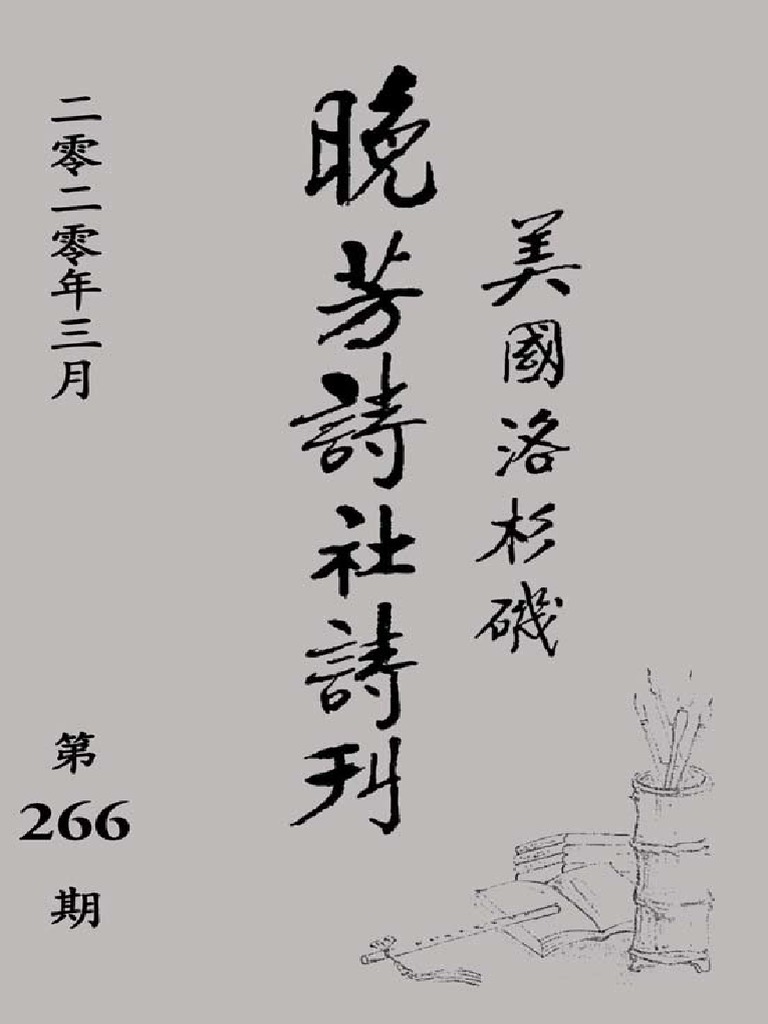 美國洛杉磯
晚芳詩社詩刊
二零二零年三月
第
266
期